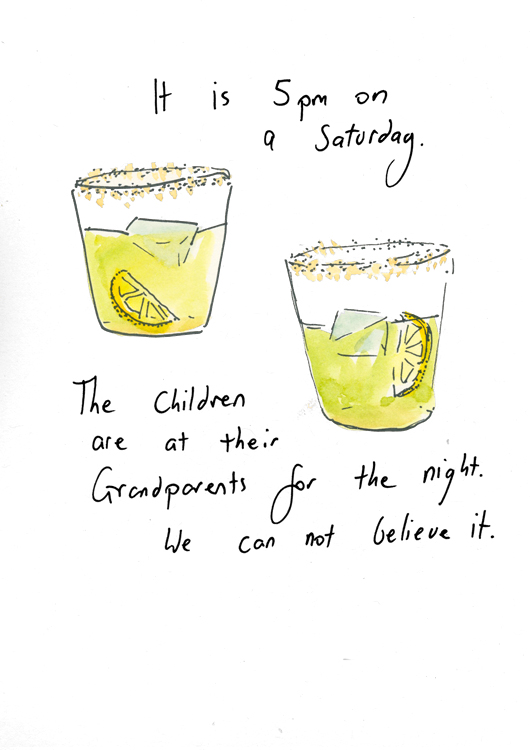 It is 5pm on
a Saturday.
The Children
are at their
Grandparents for the night.
We can not believe it.